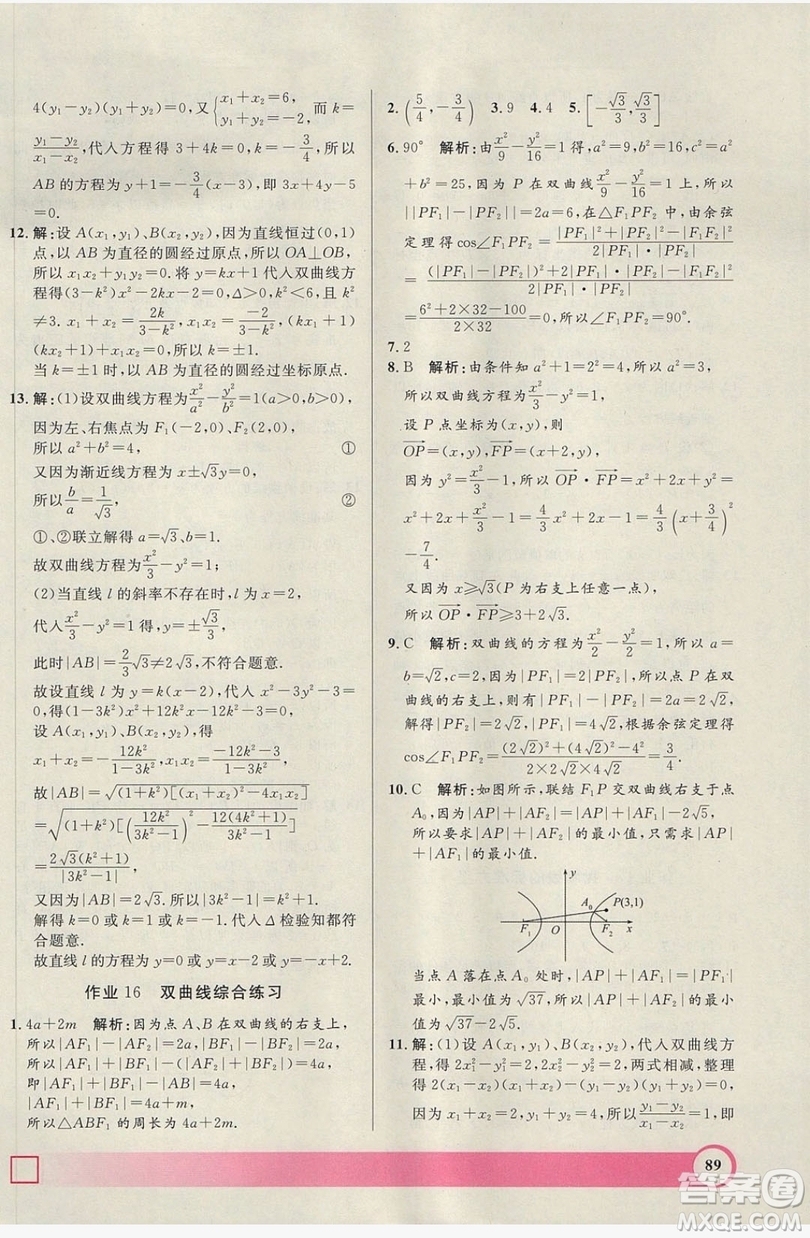 4(y₁-y₂)(y₁+y₂)=0,又{x₁+x₂=6, y₁+y₂=-2, 而 k=
(y₁-y₂)/(x₁-x₂),代入方程得 3+4k=0,k=-3/4,所以
AB 的方程为 y+1=-3/4(x-3),即 3x+4y-5
=0.
12.解:设 A(x₁,y₁)、B(x₂,y₂),因为直线恒过(0,1)
点,以 AB 为直径的圆经过原点,所以 OA⊥OB,
所以 x₁x₂+y₁y₂=0.将 y=kx+1 代入双曲线方
程得(3-k²)x²-2kx-2=0,Δ>0,k²<6 且 k²
≠3. x₁+x₂=2k/(3-k²),x₁x₂=-2/(3-k²),(kx₁+1)
(kx₂+1)+x₁x₂=0,解得 k=±1.
当 k=±1 时,以 AB 为直径的圆经过坐标原点.
13.解:(1)设双曲线方程为x²/a²-y²/b²=1(a>0,b>0),
因为左、右焦点为 F₁(-2,0)、F₂(2,0),
所以 a²+b²=4, ①
又因为渐近线方程为 x±√3y=0,
所以b/a=1/√3, ②
①、②联立解得 a=√3、b=1,
故双曲线方程为x²/3-y²=1.
(2)当直线 l 的斜率不存在时,
代入x²/3-y²=1 得,y=±√3/3,
此时|AB|=2/3√3≠2√3,不符合题意.
故设直线 l 为 y=k(x+2),代入 x²-3y²-3=
0,得(1-3k²)x²-12k²x-12k²-3=0.
设 A(x₁,y₁)、B(x₂,y₂),得
x₁+x₂=-12k²/(1-3k²),x₁x₂=(-12k²-3)/(1-3k²),
故|AB|=√((1+k²)[(x₁+x₂)²-4x₁x₂])=
√((1+k²)[(12k²/(3k²-1))²-12(4k²+1)/(3k²-1)])
=2√3(k²+1)/|3k²-1|.
又因为|AB|=2√3,所以 k²+1=|3k²-1|.
解得 k=0 或 k=1 或 k=-1,代入 Δ 检验知都符
合题意.
故直线 l 的方程为 y=0 或 y=x+2 或 y=-x-2.
作业 16 双曲线综合练习
1. 4a+2m 解析:因为点 A、B 在双曲线的右支上,
所以|AF₁|-|AF₂|=2a,|BF₁|-|BF₂|=2a,
所以|AF₁|+|BF₁|-(|AF₂|+|BF₂|)=4a,
即|AF₁|+|BF₁|-|AB|=4a,
所以|AF₁|+|BF₁|=4a+m,
所以△ABF₁ 的周长为 4a+2m.
2. (5/4,-3/4) 3. 9 4. 4 5. [-√3/3,√3/3]
6. 90° 解析:由x²/9-y²/16=1 得,a²=9,b²=16,c²=a²
+b²=25,因为 P 在双曲线x²/9-y²/16=1 上,所以
||PF₁|-|PF₂||=2a=6,在△F₁PF₂ 中,由余弦
定理得 cos∠F₁PF₂=(|PF₁|²+|PF₂|²-|F₁F₂|²)/(2|PF₁|·|PF₂|)
=((|PF₁|-|PF₂|)²+2|PF₁|·|PF₂|-|F₁F₂|²)/(2|PF₁|·|PF₂|)
=(6²+2×32-100)/(2×32)=0,所以∠F₁PF₂=90°.
7. 2
8. B 解析:由条件知 a²+1=2²=4,所以 a²=3,
所以双曲线方程为x²/3-y²=1.
设 P 点坐标为(x,y),
OP→=(x,y),FP→=(x+2,y),
因为 y²=x²/3-1,所以OP→·FP→=x²+2x+y²=
x²+2x+x²/3-1=4/3x²+2x-1=4/3(x+3/4)²
-7/4.
又因为 x≥√3(P 为右支上任意一点),
所以OP→·FP→≥3+2√3.
9. C 解析:双曲线的方程为x²/2-y²/2=1,所以 a=
b=√2,c=2,因为|PF₁|=2|PF₂|,所以点 P 在双
曲线的右支上,则有|PF₁|-|PF₂|=2a=2√2,
解得|PF₂|=2√2,|PF₁|=4√2,根据余弦定理得
cos∠F₁PF₂=((2√2)²+(4√2)²-4²)/(2×2√2×4√2)=3/4.
10. C 解析:如图所示,联结 F₁P 交双曲线右支于点
A₀,因为|AP|+|AF₂|=|AP|+|AF₁|-2√5,
所以要求|AP|+|AF₂|的最小值,只需求|AP|+
|AF₁|的最小值.
y
A₀
P(3,1)
F₁
O
F₂
x
当点 A 落在点 A₀ 处时,|AP|+|AF₁|=|PF₁|
最小,最小值为√37,所以|AP|+|AF₂|的最小值
为√37-2√5.
11.解:(1)设 A(x₁,y₁)、B(x₂,y₂),代入双曲线方
程,得 2x₁²-y₁²=2,2x₂²-y₂²=2,两式相减,整理
得 2(x₁-x₂)(x₁+x₂)-(y₁-y₂)(y₁+y₂)=0.
因为 x₁+x₂=4,y₁+y₂=2,所以(y₁-y₂)/(x₁-x₂)=4,即
89
答案圈
MXQE.COM